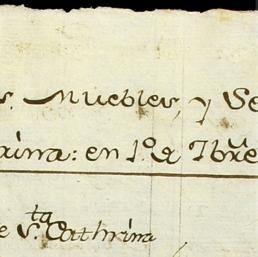 s. Muebles, y Se
rina: en 1º. de 7bre
e Sta. Cathrina